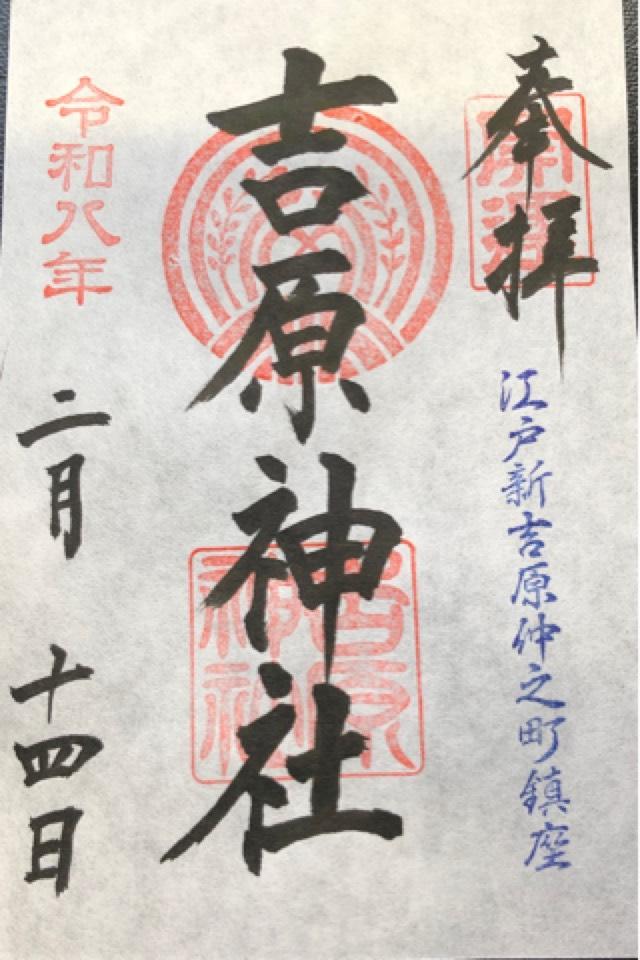 奉拝
開運
江戸新吉原仲之町鎮座
吉原神社
吉原神社
令和八年
二月十四日